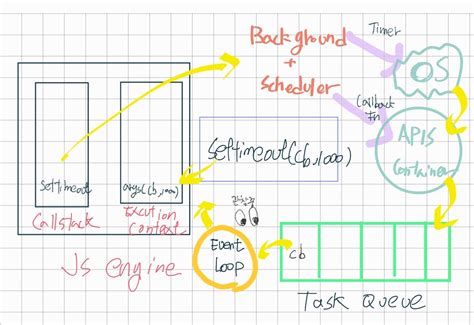 Background
+
Scheduler
Timer
OS
Callback
Fn
APIS
Container
Settimeout(cb,1000)
Settimeout
args(cb,1000)
Callstack
Excution
Context
JS engine
Event
Loop
cb
Task Queue